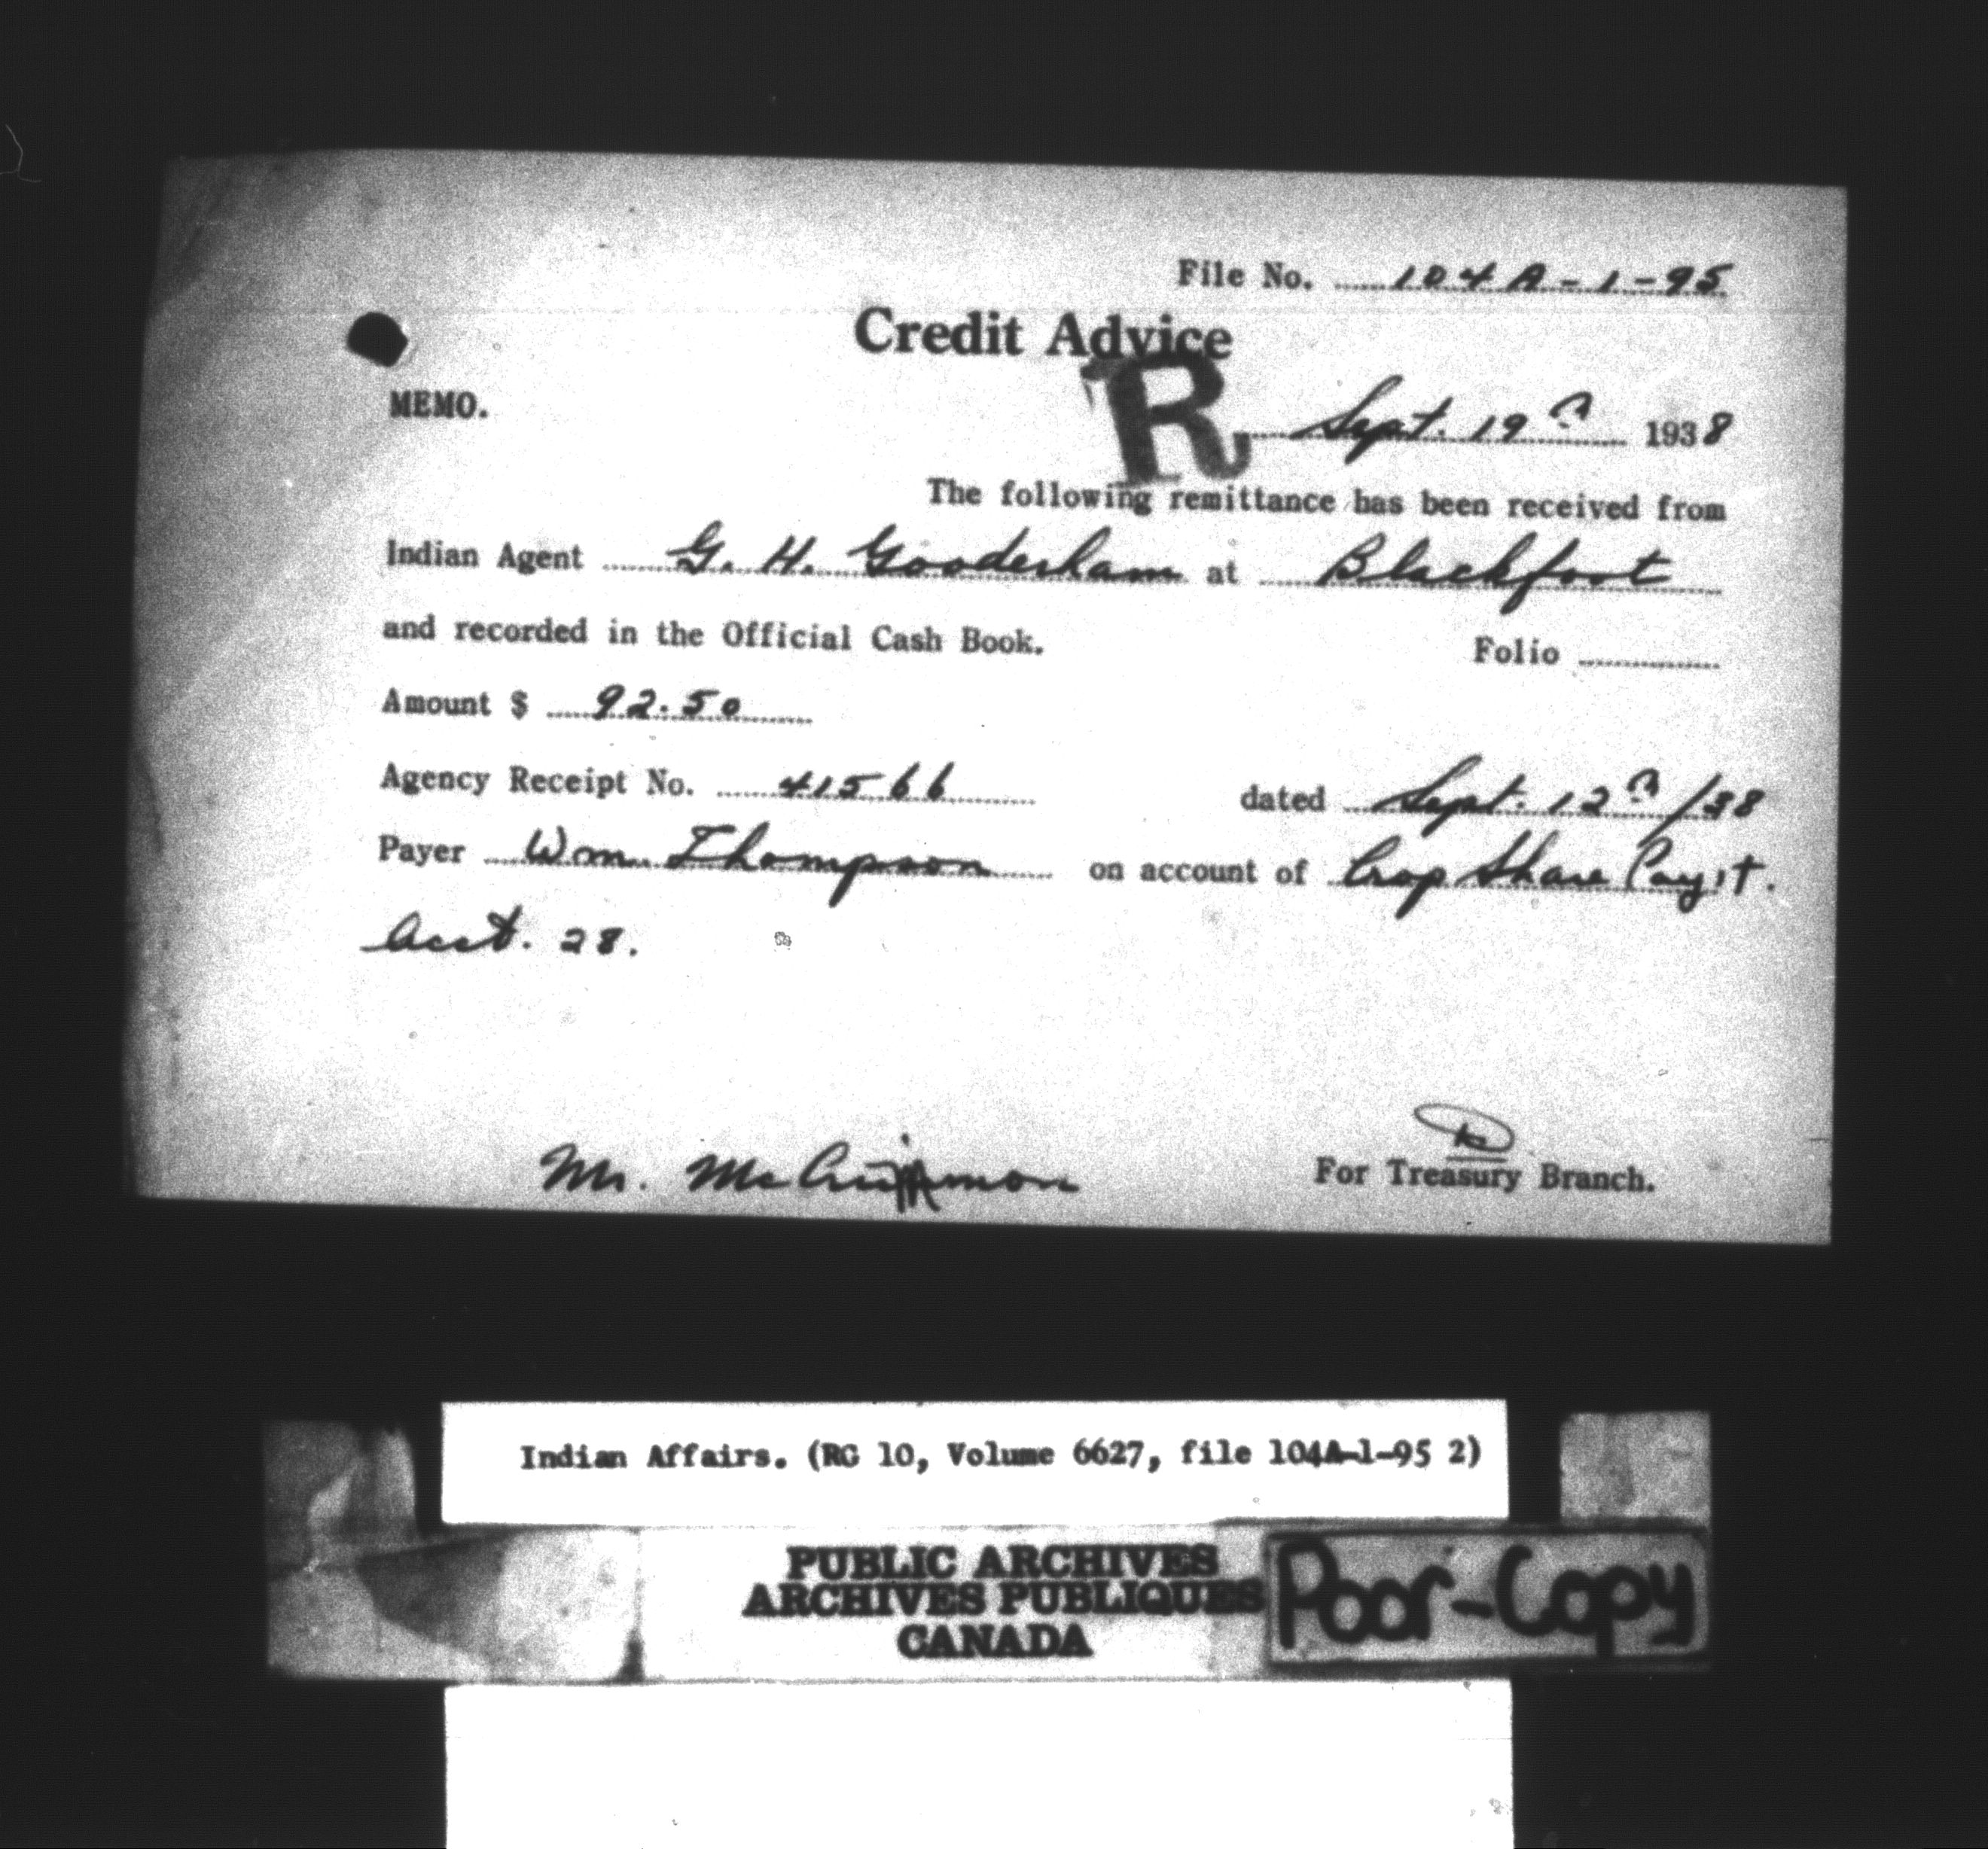 File No. 104A-1-95
Credit Advice
R
MEMO.
Sept. 19th 1938
The following remittance has been received from
Indian Agent G. H. Gooderham at Blackfoot
and recorded in the Official Cash Book. Folio
Amount $ 92.50
Agency Receipt No. 41566 dated Sept. 12th/38
Payer Wm. Thompson on account of Crop Share Pay't.
Acct. 28.
Mr.
For Treasury Branch.
Indian Affairs. (RG 10, Volume 6627, file 104A-1-95 2)
PUBLIC ARCHIVES
ARCHIVES PUBLIQUES
CANADA
Poor-Copy